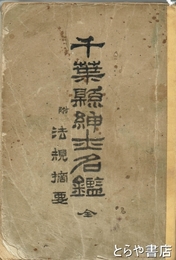 千葉縣紳士名鑑 全
附 法規摘要
とらや書店